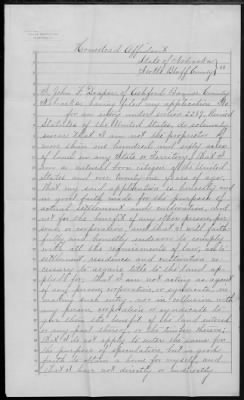 Homestead Affidavit
State of Nebraska
Scotts Bluff County } ss
I, John F. Draper of Ashford Banner County
Nebraska having filed my application No.
for an entry under section 2289, Revised
Statutes of the United States do solemnly
swear that I am not the proprietor of
more than one hundred and sixty acres
of land in any State or Territory; that I
am a native born citizen of the United
States and over twenty-one years of age;
that my said application is honestly and
in good faith made for the purpose of
actual settlement and cultivation, and
not for the benefit of any other person, per-
sons or corporation, and that I will faith-
fully and honestly endeavor to comply
with all the requirements of law as to
settlement, residence and cultivation ne-
cessary to acquire title to the land ap-
plied for; that I am not acting as agent
of any person, corporation, or syndicate in
making such entry, nor in collusion with
any person, corporation or syndicate to
give them the benefit of the land entered
or any part thereof or the timber thereon;
that I do not apply to enter the same for
the purpose of speculation, but in good
faith to obtain a home for myself, and
that I have not directly or indirectly